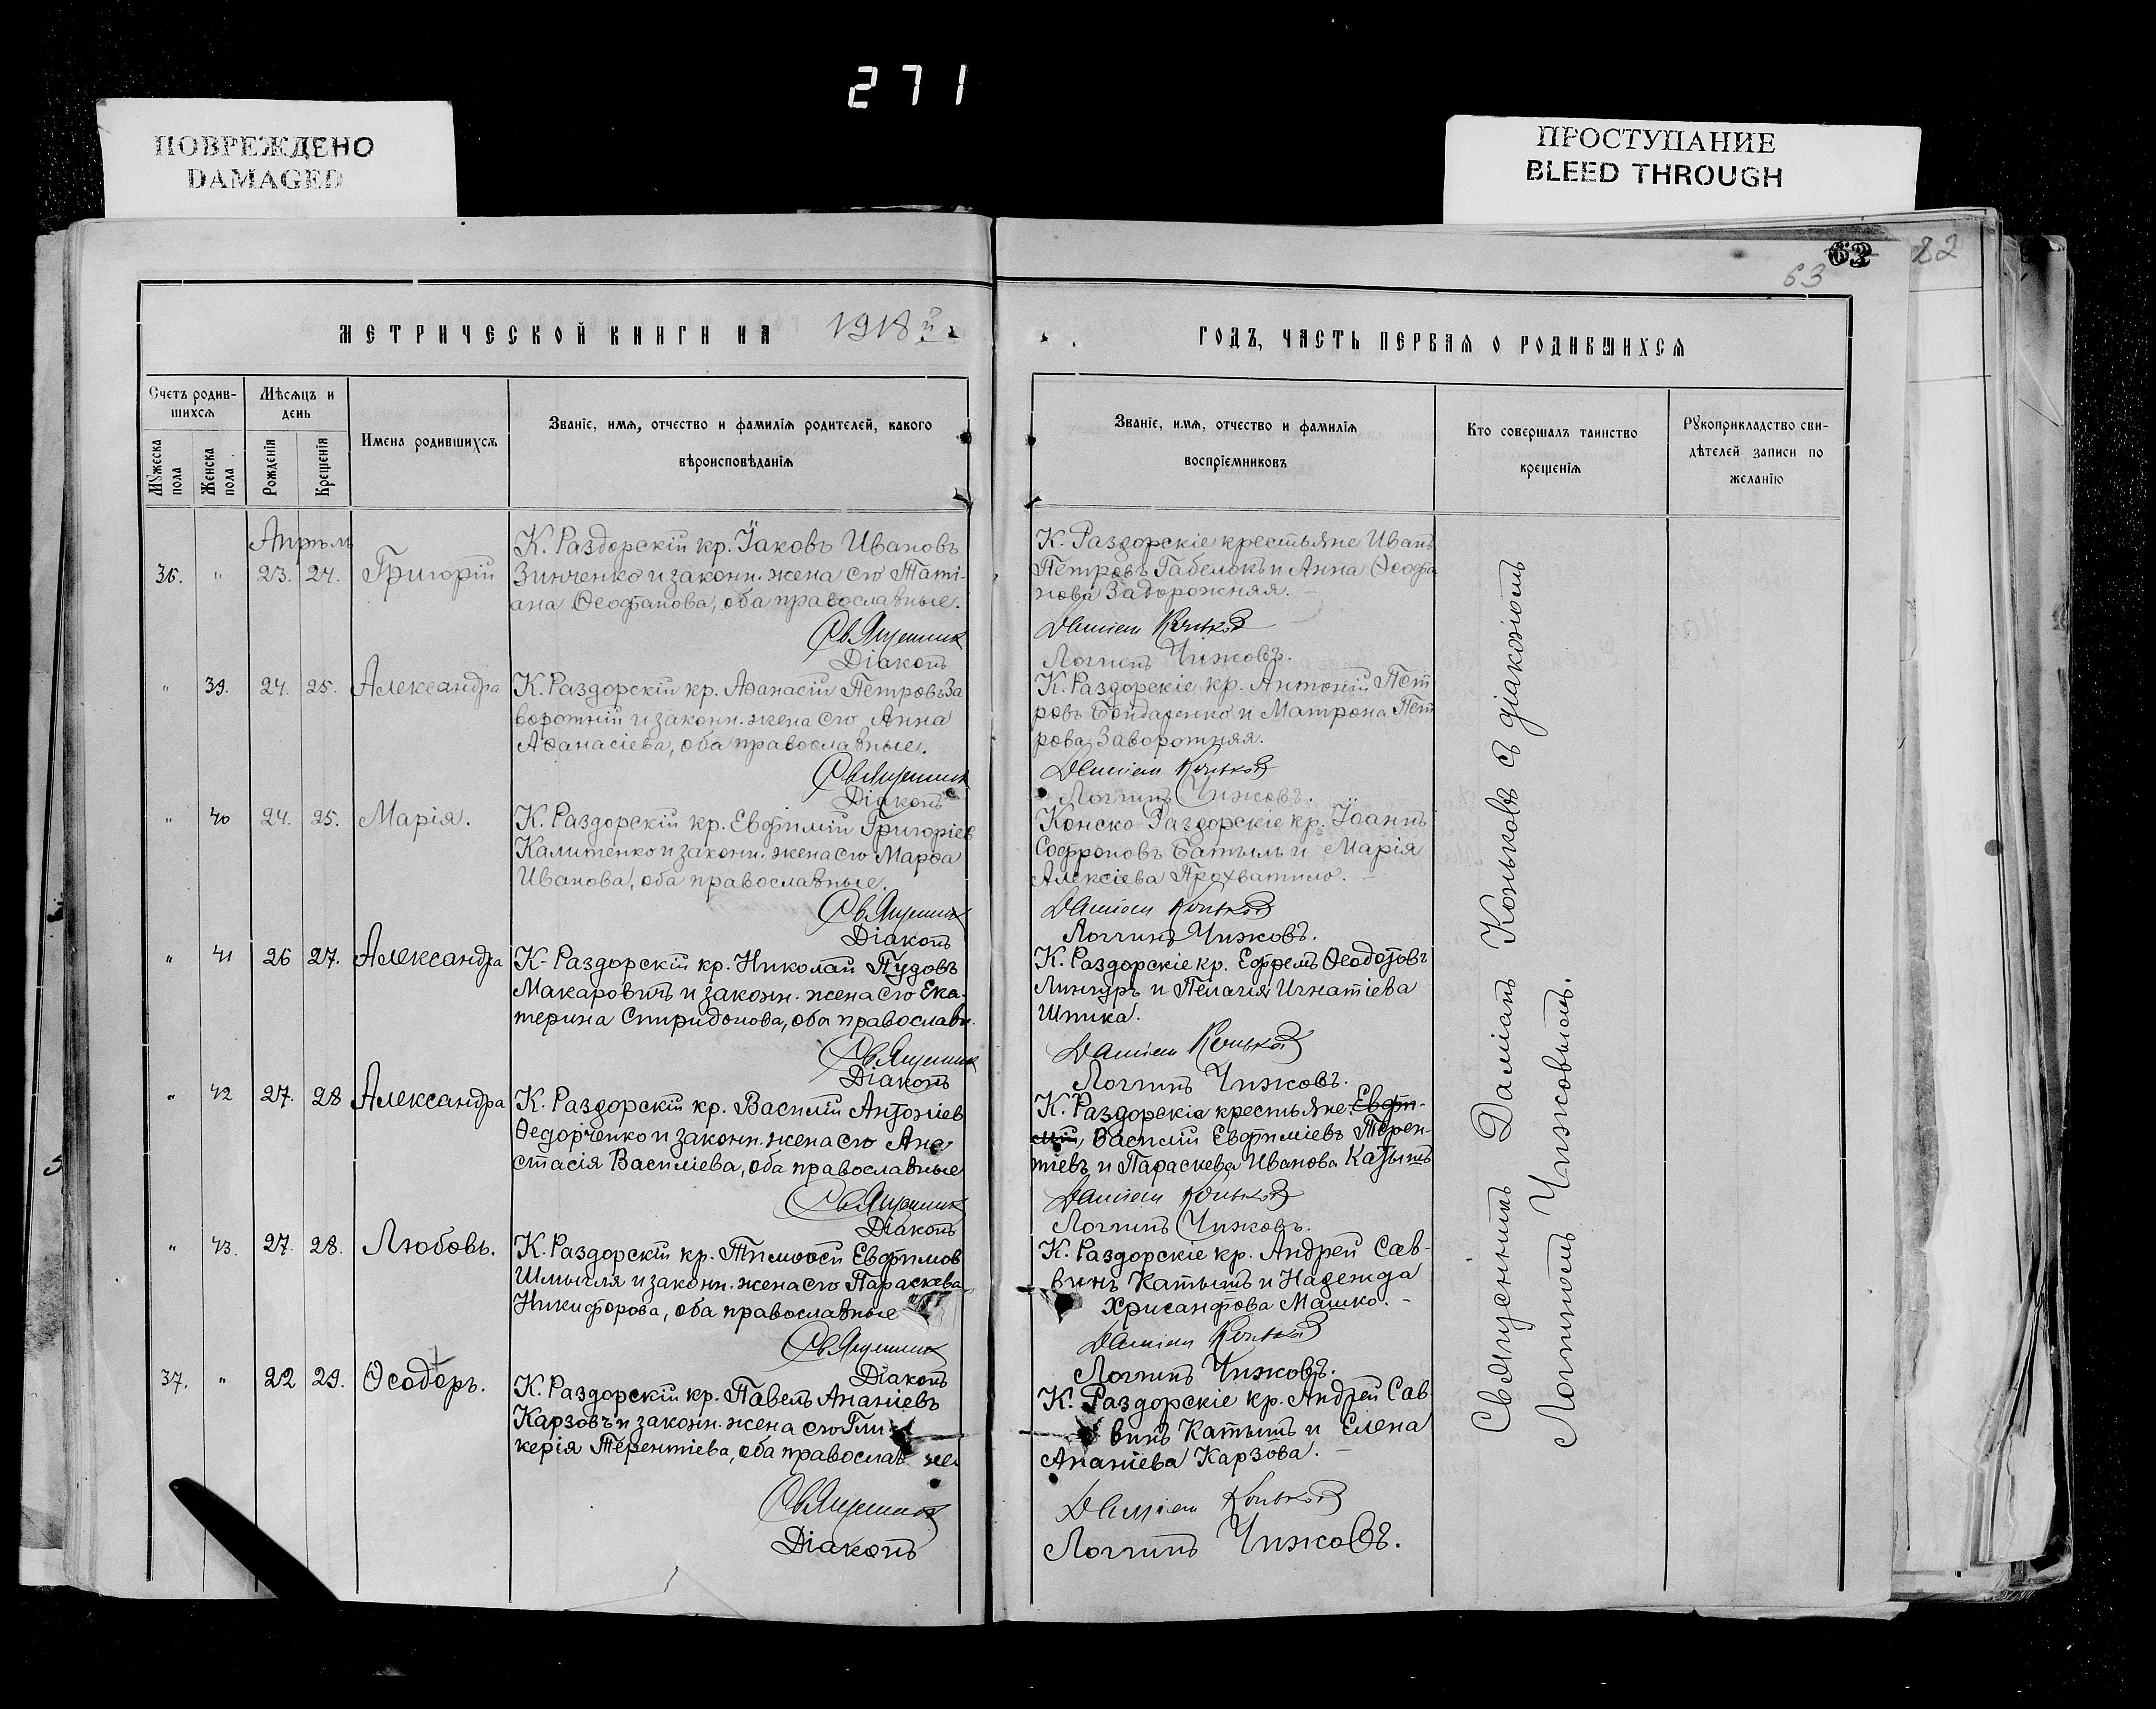 271
ПОВРЕЖДЕНО
DAMAGED
ПРОСТУПАНИЕ
BLEED THROUGH
63
63
22
МЕТРИЧЕСКОЙ КНИГИ НА 1918 й
ГОДЪ, ЧАСТЬ ПЕРВАЯ О РОДИВШИХСЯ
Счетъ родив-
шихся
Мѣсяцъ и
день
Мужеска
пола
Женска
пола
Рожденія
Крещенія
Имена родившихся
Званіе, имя, отчество и фамилія родителей, какого
вѣроисповѣданія
Званіе, имя, отчество и фамилія
воспріемниковъ
Кто совершалъ таинство
крещенія
Рукоприкладство сви-
дѣтелей записи по
желанію
Апрѣль
36. " 23. 24. Григорій
К. Раздорскій кр. Іаковъ Ивановъ
Зинченко и законн. жена его Таті-
ана Ѳеофанова, оба православные.
Священник
Діаконъ
К. Раздорскіе крестьяне Иванъ
Петровъ Габелокъ и Анна Ѳеофа
нова Задорожняя.
Даміан Коньков
Логгинъ Чижовъ.
" 39. 24. 25. Александра
К. Раздорскій кр. Аѳанасій Петровъ За
воротній и законн. жена его Анна
Аѳанасіева, оба православные.
Священник
Діаконъ
К. Раздорскіе кр. Антоній Пет
ровъ Бондаренко и Матрона Пет
рова Заворотняя.
Даміан Коньков
Логгинъ Чижовъ.
" 40 24. 25. Марія.
К. Раздорскій кр. Евфимій Григоріев
Калитенко и законн. жена его Марѳа
Иванова, оба православные.
Священник
Діаконъ
Конско-Раздорскіе кр. Іоаннъ
Софроновъ Батыль и Марія
Алексіева Прохватило.
Даміан Коньков
Логгинъ Чижовъ.
" 41 26 27. Александра
К. Раздорскій кр. Николай Пудовъ
Макаровичъ и законн. жена его Ека-
терина Спиридонова, оба православн.
Священник
Діаконъ
К. Раздорскіе кр. Ефремъ Ѳеодотовъ
Линчуръ и Пелагія Игнатіева
Шпика.
Даміан Коньков
Логгинъ Чижовъ.
" 42 27. 28 Александра
К. Раздорскій кр. Василій Антоніев
Ѳедорченко и законн. жена его Ана-
стасія Василіева, оба православные
Священник
Діаконъ
К. Раздорскіе крестьяне Евфи-
мій, Василій Евфиміевъ Терен-
тіевъ и Параскева Иванова Катышъ
Даміан Коньков
Логгинъ Чижовъ.
" 43. 27. 28. Любовь.
К. Раздорскій кр. Тимоѳей Евфимов
Шмыгля и законн. жена его Параскева
Никифорова, оба православные
Священник
Діаконъ
К. Раздорскіе кр. Андрей Сав-
винъ Катышъ и Надежда
Хрисанфова Машко.
Даміан Коньков
Логгинъ Чижовъ.
37. " 22 29. Ѳеодоръ.
К. Раздорскій кр. Павелъ Ананіевъ
Карзовъ и законн. жена его Гли
керія Терентіева, оба православ ные
Священник
Діаконъ
К. Раздорскіе кр. Андрей Сав
винъ Катышъ и Елена
Ананіева Карзова.
Даміан Коньков
Логгинъ Чижовъ.
Священникъ Даміанъ Коньковъ съ діакономъ
Логгиномъ Чижовымъ.